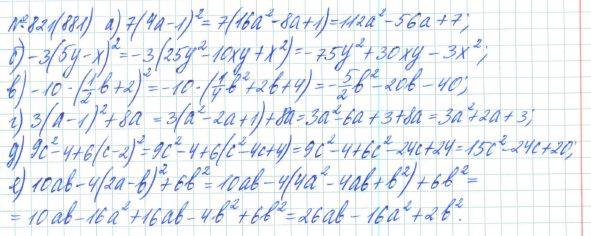 №821(881) а) 7(4a-1)²=7(16a²-8a+1)=112a²-56a+7;
б) -3(5y-x)²=-3(25y²-10xy+x²)=-75y²+30xy-3x²;
в) -10·(1/2b+2)²=-10·(1/4b²+2b+4)=-5/2b²-20b-40;
г) 3(a-1)²+8a=3(a²-2a+1)+8a=3a²-6a+3+8a=3a²+2a+3;
д) 9c²-4+6(c-2)²=9c²-4+6(c²-4c+4)=9c²-4+6c²-24c+24=15c²-24c+20;
е) 10ab-4(2a-b)²+6b²=10ab-4(4a²-4ab+b²)+6b²=
=10ab-16a²+16ab-4b²+6b²=26ab-16a²+2b².